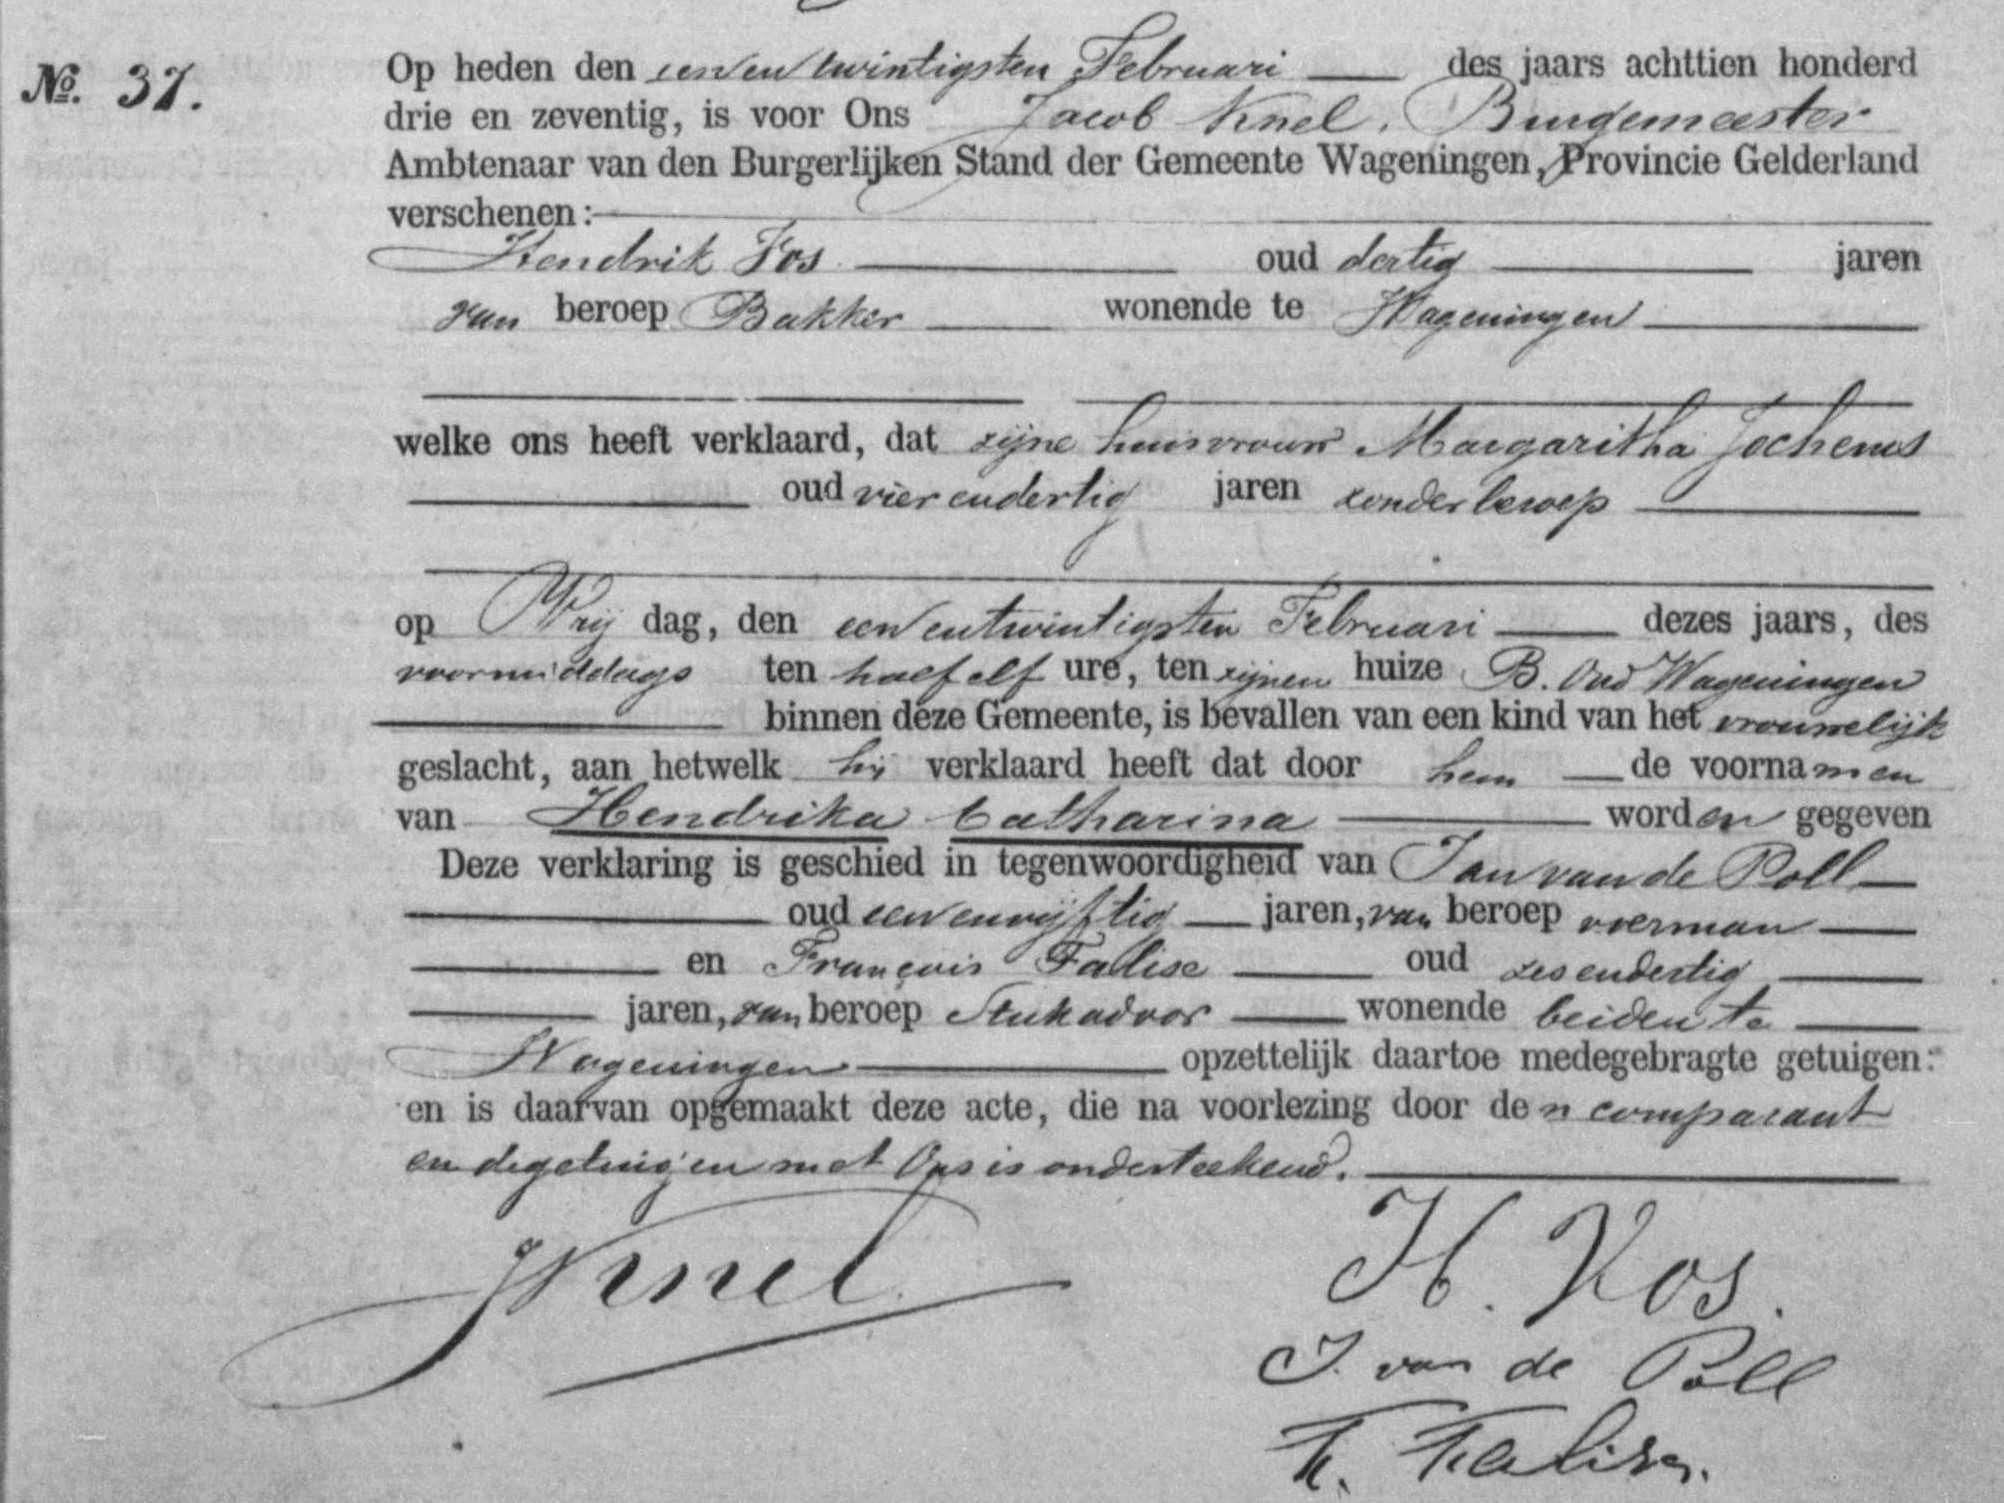 No. 37.
Op heden den een en twintigsten Februari des jaars achttien honderd
drie en zeventig, is voor Ons Jacob Knel, Burgemeester
Ambtenaar van den Burgerlijken Stand der Gemeente Wageningen, Provincie Gelderland
verschenen:
Hendrik Vos oud dertig jaren
van beroep Bakker wonende te Wageningen
welke ons heeft verklaard, dat zijne huisvrouw Margaritha Jochems
oud vier en dertig jaren zonder beroep
op Vrij dag, den een en twintigsten Februari dezes jaars, des
voormiddags ten half elf ure, ten zijnen huize B. Oud Wageningen
binnen deze Gemeente, is bevallen van een kind van het vrouwelijk
geslacht, aan hetwelk hij verklaard heeft dat door hem de voornamen
van Hendrika Catharina worden gegeven
Deze verklaring is geschied in tegenwoordigheid van Jan van de Poll
oud een en vijftig jaren, van beroep voerman
en François Falise oud zes en dertig
jaren, van beroep Stukadoor wonende beiden te
Wageningen opzettelijk daartoe medegebragte getuigen:
en is daarvan opgemaakt deze acte, die na voorlezing door den comparant
en de getuigen met Ons is onderteekend.
JKnel
H. Vos.
J. van de Poll
F. Falise.